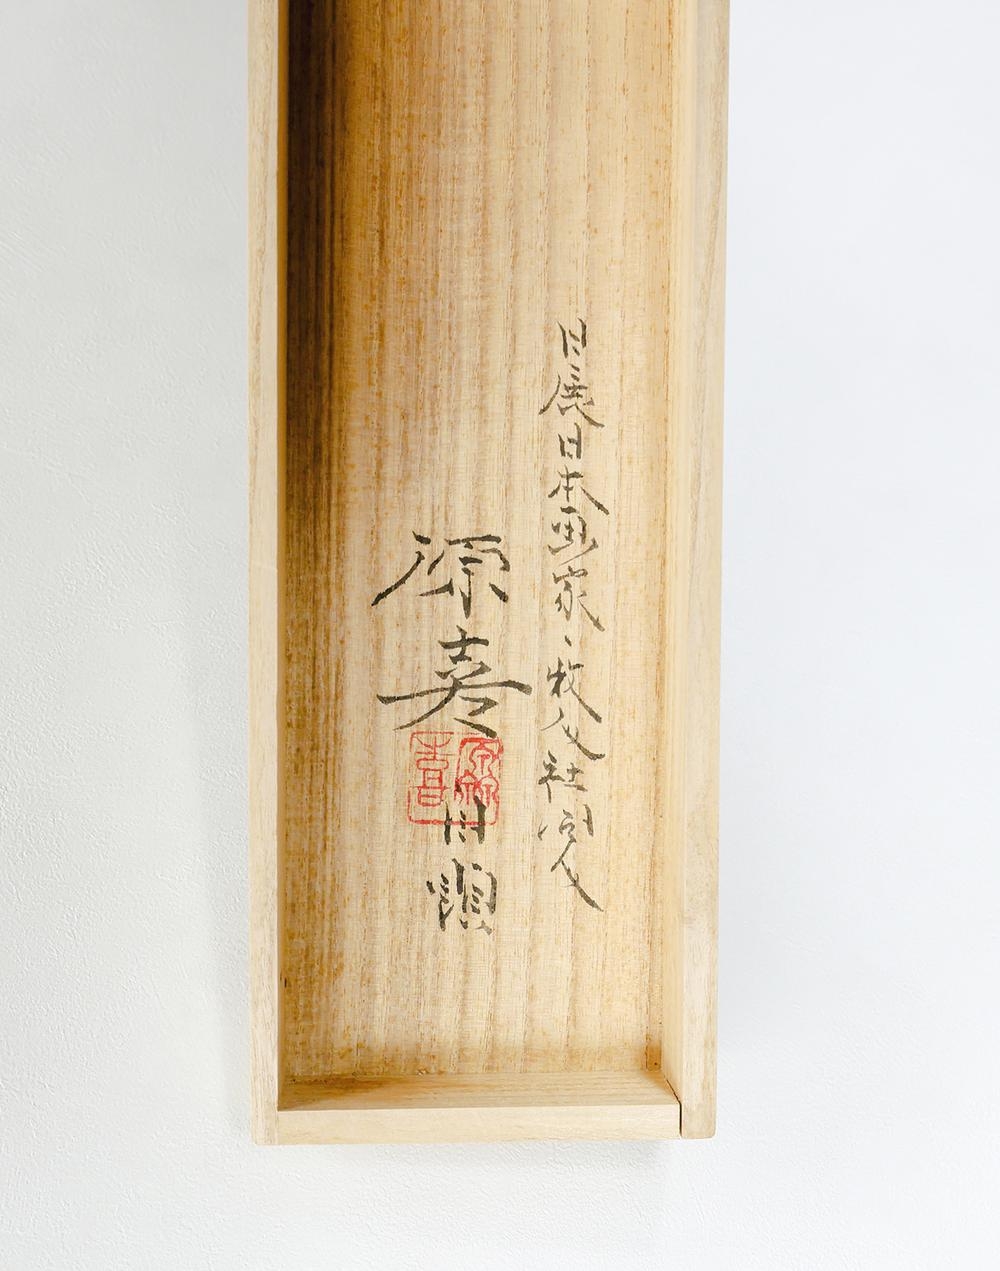 日展日本画家、牧人社同人
源喜
自題